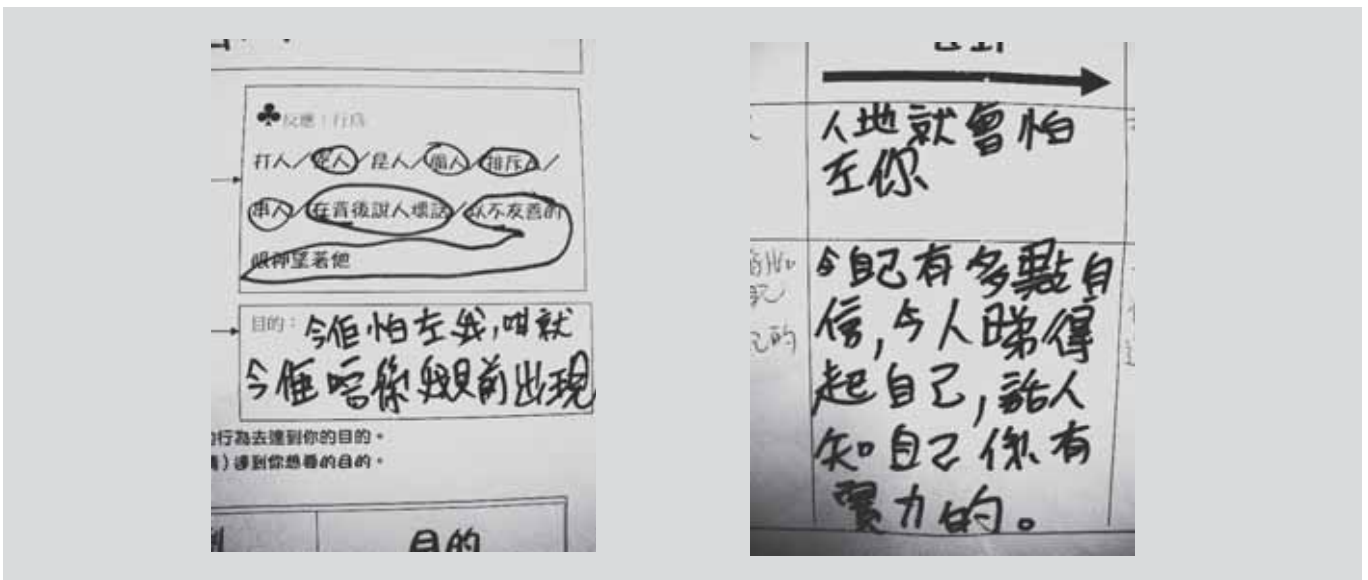 ♣反應：行為
打人／／昆人／／排斥人／
串人／在背後說人壞話／以不友善的
眼神望著他
目的：令佢怕左我，咁就
令佢唔係我眼前出現
行為去達到你的目的。
達到你想要的目的。
目的
人地就會怕
左你
令自己有多點自
信，令人睇得
起自己，話人
知自己係有
實力的。